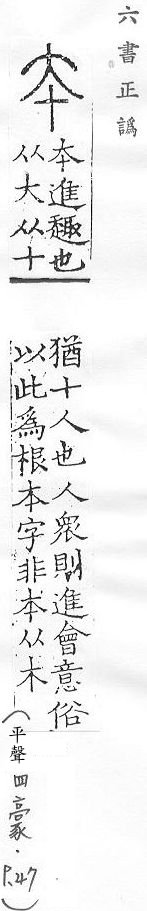 六書正譌
夲
夲進趣也
从大从十
猶十人也人衆則進會意俗
以此為根本字非本从木
（平聲四豪．P.47）